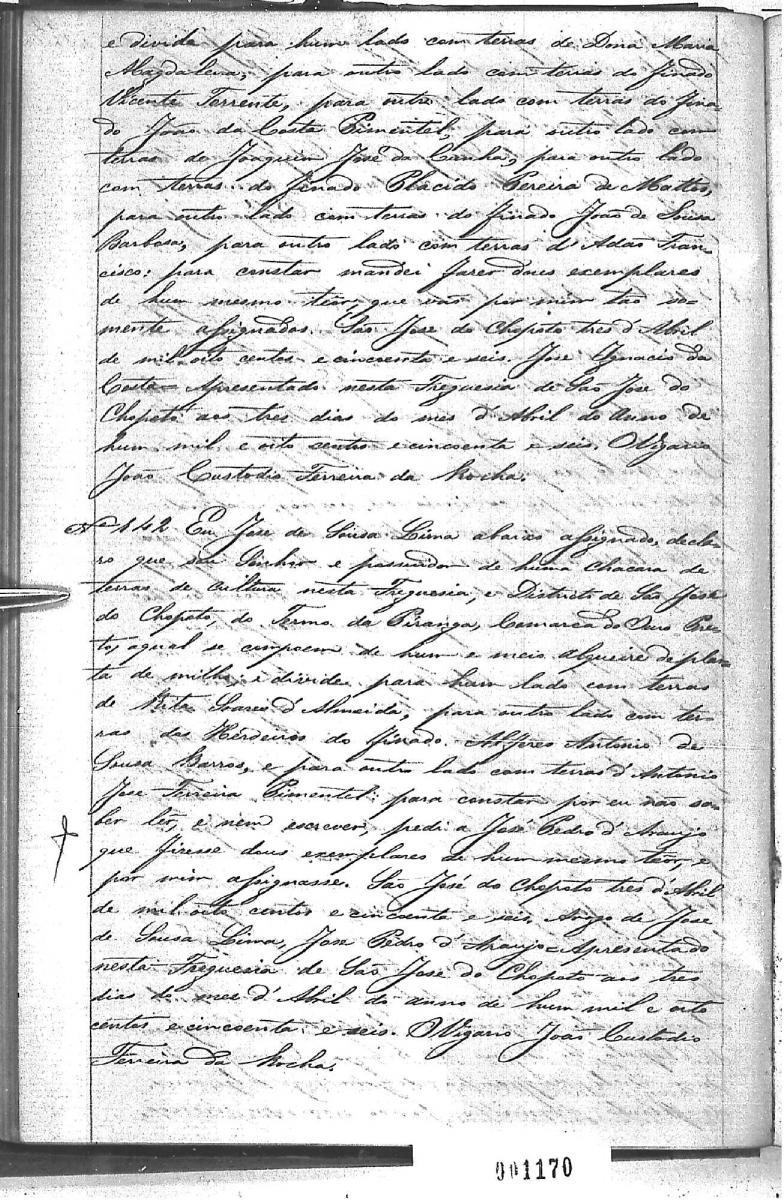 e divida para hum lado com terras de Dona Maria
Magdalena, para outro lado com terras do finado
Vicente Ferrente, para outro lado com terras do fina-
do João da Costa Pimentel, para outro lado com
terras de Joaquim José da Cunha, para outro lado
com terras do finado Placido Pereira de Mattos,
para outro lado com terras do finado João de Sousa
Barbosa, para outro lado com terras d'Adão Fran-
cisco: para constar mandei fazer dous exemplares
de hum mesmo teor, que vão por mim tão so-
mente assignados. São Jose do Chopoto tres d'Abril
de mil oito centos e cincoenta e seis. Jose Ignacio da
Costa = Apresentado nesta Freguesia de São Jose do
Chopoto aos tres dias do mes d'Abril do Anno de
hum mil e oito centro e cincoenta e seis. O Vigario
João Custodio Ferreira da Rocha.
Nº 142 Eu Jose de Sousa Lima abaixo assignado, decla-
ro que sou Senhor e possuidor de huma Chacara de
terras de cultura nesta Freguesia, e Districto de São Jose
do Chopoto, do Termo da Piranga, Comarca do Ouro Pre-
to, aqual se compoem de hum e meio alqueire de plan-
ta de milho: e divide para hum lado com terras
de Rita Soares d'Almeida, para outro lado com ter-
ras dos Herdeiros do finado Alferes Antonio de
Sousa Barros, e para outro lado com terras d'Antonio
Jose Ferreira Pimentel: para constar por eu não sa-
ber ler, e nem escrever, pedi a José Pedro d'Araujo
que fizesse dous exemplares de hum mesmo teor, e
por mim assignasse. São José do Chopoto tres d'Abril
de mil oito centos e cincoenta e seis. Arogo de Jose
de Sousa Lima, Jose Pedro d'Araujo = Apresentado
nesta Freguesia de São José do Chopoto aos tres
dias do mes d'Abril do anno de hum mil e oito
centos e cincoenta e seis. O Vigario João Custodio
Ferreira da Rocha.
001170